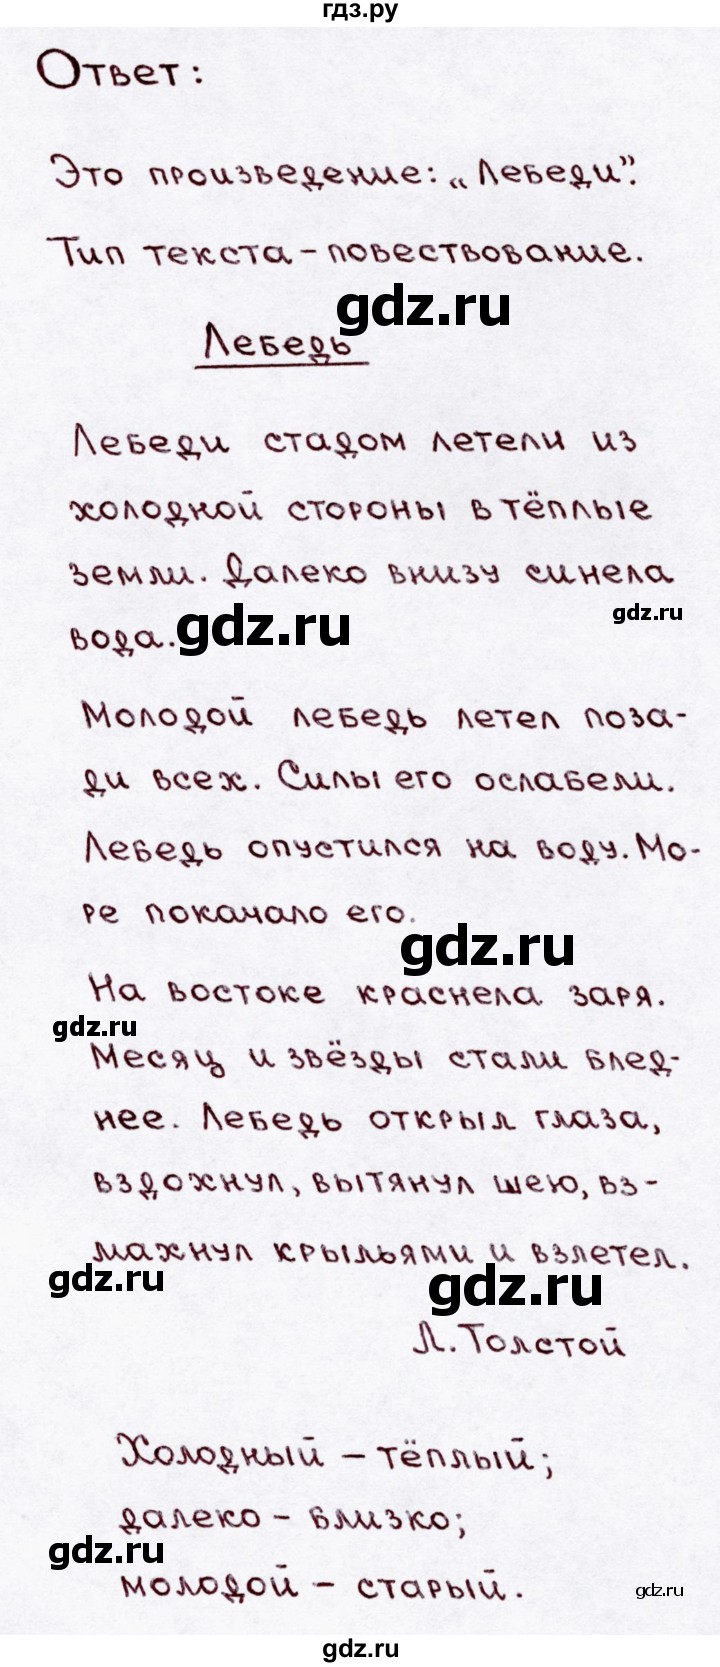 гдз.ру
Ответ:
Это произведение: „Лебеди”.
Тип текста – повествование.
gdz.ru
Лебедь
Лебеди стадом летели из
холодной стороны в тёплые
земли. Далеко внизу синела
gdz.ru
вода. gdz.ru
Молодой лебедь летел поза-
ди всех. Силы его ослабели.
Лебедь опустился на воду. Мо-
ре покачало его.
gdz.ru
На востоке краснела заря.
gdz.ru
Месяц и звёзды стали блед-
нее. Лебедь открыл глаза,
вздохнул, вытянул шею, вз-
махнул крыльями и взлетел.
gdz.ru gdz.ru
Л. Толстой
Холодный – тёплый;
далеко – близко;
gdz.ru
молодой – старый.
gdz.ru
gdz.ru